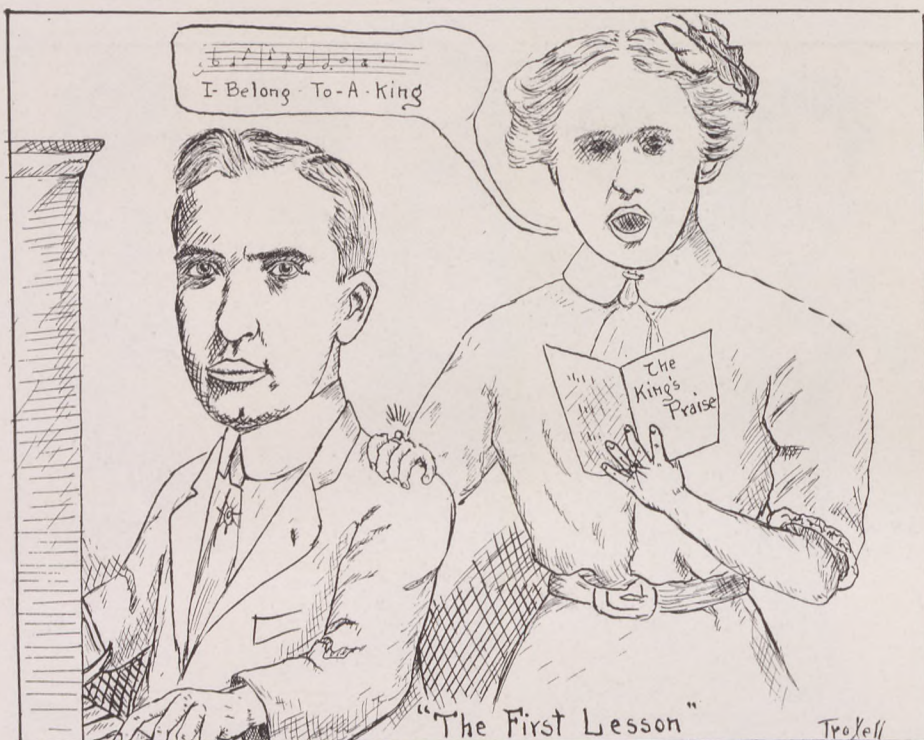 I-Belong-To-A-King
The
King's
Praise
"The First Lesson"
Troxell